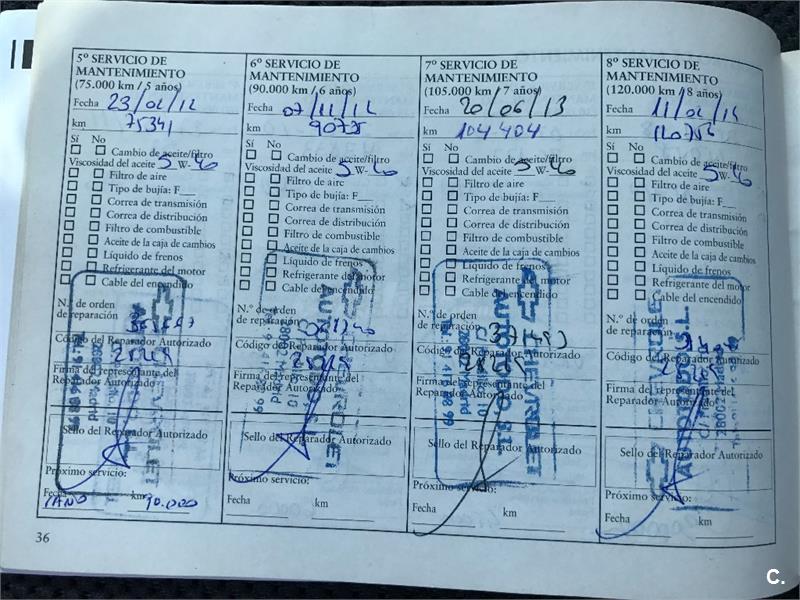 5º SERVICIO DE
MANTENIMIENTO
(75.000 km / 5 años)
Fecha 23/02/12
km 75341
Sí No
Cambio de aceite/filtro
Viscosidad del aceite 5 W-40
Filtro de aire
Tipo de bujía: F___
Correa de transmisión
Correa de distribución
Filtro de combustible
Aceite de la caja de cambios
Líquido de frenos
Refrigerante del motor
Cable del encendido
N.º de orden
de reparación
Código del Reparador Autorizado
Firma del representante del
Reparador Autorizado
Sello del Reparador Autorizado
Próximo servicio:
Fecha 1 AÑO km 90.000
6º SERVICIO DE
MANTENIMIENTO
(90.000 km / 6 años)
Fecha 07/11/12
km
Sí No
Cambio de aceite/filtro
Viscosidad del aceite 5 W-40
Filtro de aire
Tipo de bujía: F___
Correa de transmisión
Correa de distribución
Filtro de combustible
Aceite de la caja de cambios
Líquido de frenos
Refrigerante del motor
Cable del encendido
N.º de orden
de reparación
Código del Reparador Autorizado
Firma del representante del
Reparador Autorizado
Sello del Reparador Autorizado
Próximo servicio:
Fecha km
7º SERVICIO DE
MANTENIMIENTO
(105.000 km / 7 años)
Fecha 20/06/13
km 104404
Sí No
Cambio de aceite/filtro
Viscosidad del aceite 5 W-40
Filtro de aire
Tipo de bujía: F___
Correa de transmisión
Correa de distribución
Filtro de combustible
Aceite de la caja de cambios
Líquido de frenos
Refrigerante del motor
Cable del encendido
N.º de orden
de reparación
Código del Reparador Autorizado
Firma del representante del
Reparador Autorizado
CHEVROLET
Sello del Reparador Autorizado
Próximo servicio:
Fecha km
8º SERVICIO DE
MANTENIMIENTO
(120.000 km / 8 años)
Fecha
km
Sí No
Cambio de aceite/filtro
Viscosidad del aceite 5 W-40
Filtro de aire
Tipo de bujía: F___
Correa de transmisión
Correa de distribución
Filtro de combustible
Aceite de la caja de cambios
Líquido de frenos
Refrigerante del motor
Cable del encendido
N.º de orden
de reparación
Código del Reparador Autorizado
Firma del representante del
Reparador Autorizado
CHEVROLET
28002 Madrid
Sello del Reparador Autorizado
Próximo servicio:
Fecha km
36
C.